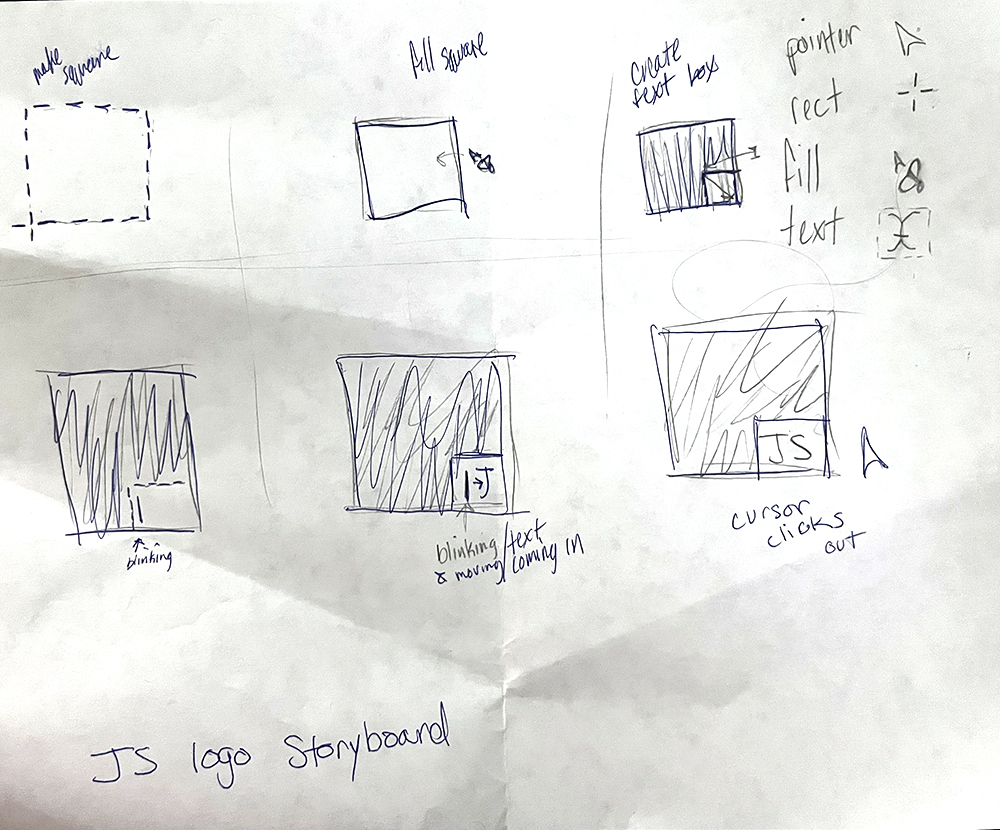 make
square
fill square
create
text box
pointer
rect
fill
text
blinking
J
blinking
& moving/text
coming in
JS
cursor
clicks
out
JS logo Storyboard